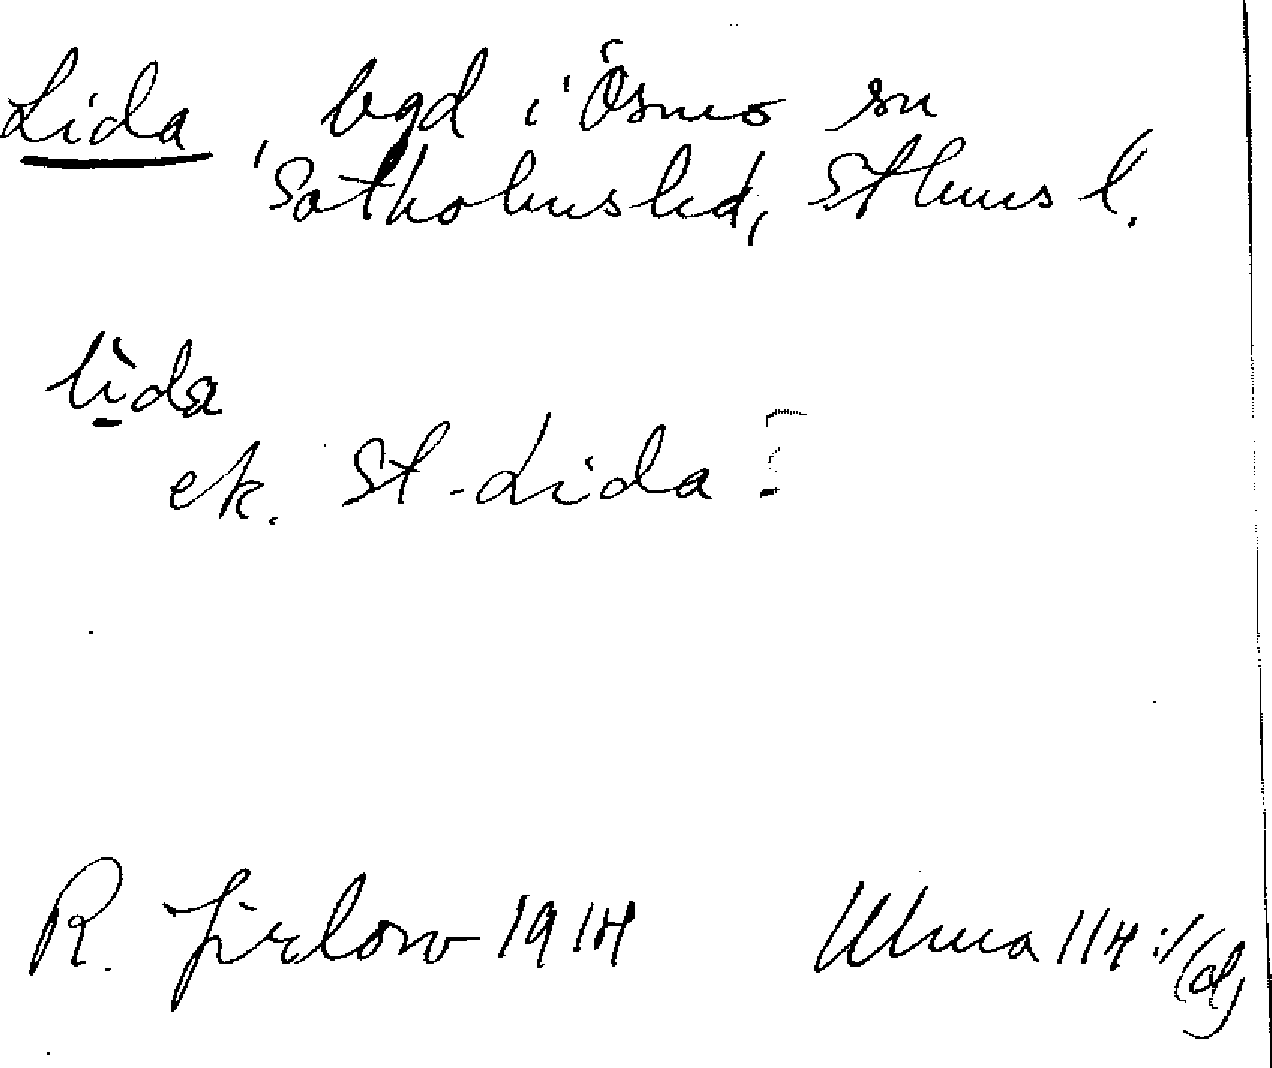 Lida, bgd i Ösmo sn
Sotholms hd, Sthms l.
lìda
ek. St. Lida
R. Jirlow 1914 Uluma 114:1